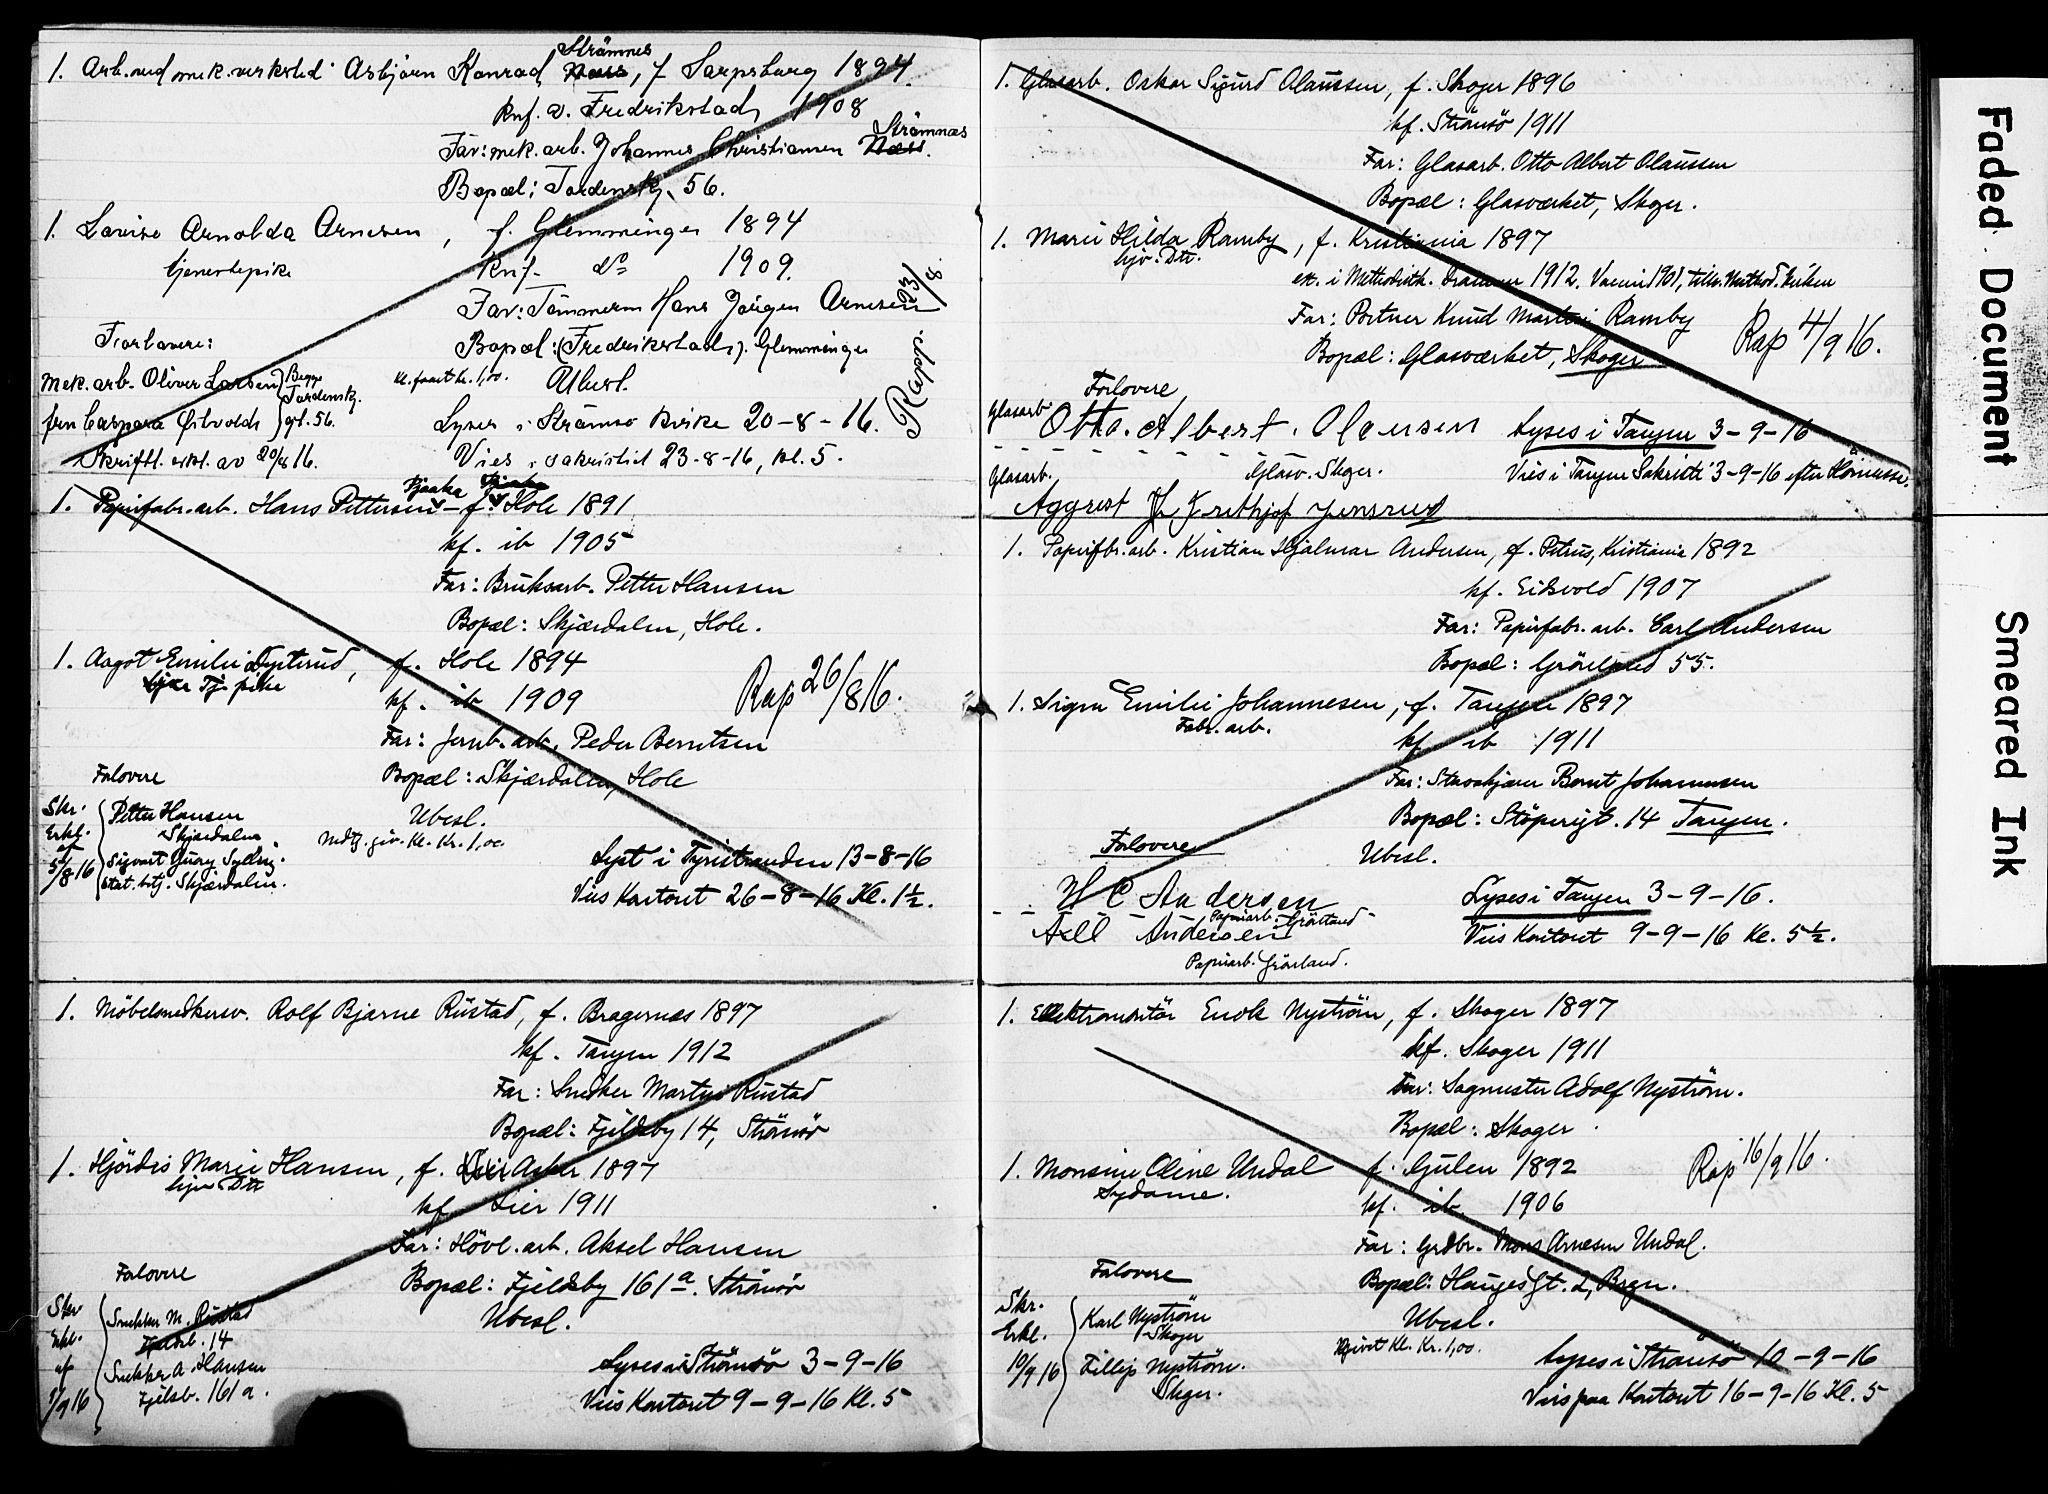 1. Arb. ved mek. verksted Asbjørn Konrad Næss, f Sarpsborg 1894.
Strømnes
Knf. v. Fredrikstad 1908
Far: mek. arb. Johannes Christiansen Næss.
Strømnæs
Bopæl: Tordensk. 56.
1. Lovise Arnolda Arnesen, f. Glemminge 1894
tjenestepike Knf. do 1909.
Far: Tømmerm Hans Jørgen Arnesen
Forlovere: Bopæl: (Fredrikstad). Glemminge
Mek. arb. Oliver Larsen Begge Tordensk. gt. 56. Kl. faaet kr. 1,00. Ubesl.
fru Caspara Lyses i Strømsø kirke 20-8-16.
Skriftl. erkl. av 20/8 16. Vies i sakristiet 23-8-16, kl. 5.
Rapp. 23/8
1. Papirfabr. arb. Hans Pettersen f. Hole 1891
Bjaake
kf. ib 1905
Far: Bruksarb. Petter Hansen
Bopæl: Skjærdalen, Hole.
1. Aagot Emilie Tysterud, f. Hole 1894
Tj. pike kf. ib 1909 Rap 26/8 16.
Far: Jernb. arb. Peder Berntsen
Forlovere Bopæl: Skjærdalen, Hole
Skr. Erkl. af 5/8 16
Petter Hansen Ubesl.
Skjærdalen Medtg. giv. Kl. Kr. 1,00
Sigvart Lyst i Tyristranden 13-8-16
stat. betj. Skjærdalen. Viis Kontoret 26-8-16 Kl. 1½.
1. Møbelsnedkersv. Rolf Bjarne Rustad, f. Bragernæs 1897
kf. Tangen 1912
Far: Snedker Martin Rustad
Bopæl: Fjeldsby 14, Strømsø
1. Hjördis Marie Hansen, f. Lier Asker 1897
hjv. Dtr kf. Lier 1911
Far: Høvl. arb. Aksel Hansen
Forlovere Bopæl: Fjeldsby 161a. Strømsø
Skr Erkl. af 1/9 16
Snekker M. Rustad Ubesl.
Fjeldb. 14
Snekker A Hansen Lyses i Strømsø 3-9-16
Fjelsb. 161 a. Viis Kontoret 9-9-16 Kl. 5
1. Glasarb. Oskar Sigurd Olaussen, f. Skoger 1896
kf. Strømsø 1911
Far: Glasarb. Otto Albert Olaussen
Bopæl: Glasværket, Skoger.
1. Marie Hilda Ramby, f. Kristiania 1897
hjv. Dtr. i Methodistk. Drammen 1912. Method. kirken
Far: Portner Knud Martin Ramby
Bopæl: Glasværket, Skoger Rap 4/9 16.
Forlovere
Glasarb Otto. Albert. Olausen Lyses i Tangen 3-9-16
Glasarb. Glasv. Skoger. Viis i Tangen Sakristi 3-9-16 efter Høimesse.
Aggrest Frithjof Jensrud
1. Papirfbr. arb. Kristian Hjalmar Andersen, f. Petrus, Kristiania 1892
kf. Eidsvold 1907
Far: Papirfabr. arb. Carl Andersen
Bopæl: Grönland 55.
1. Signe Emilie Johannesen, f. Tangen 1897
Fabr. arb. kf. ib 1911
Far: Bernt Johannesen
Bopæl: Støperigt. 14 Tangen.
Forlovere Ubesl.
H C Andersen Lyses i Tangen 3-9-16.
Papirarb. Grönland
Axel Andersen Viis Kontoret 9-9-16 Kl. 5½.
Papirarb. Grönland.
1. Elektromontör Enok Nyström, f. Skoger 1897
kf. Skoger 1911
Far: Sagmester Adolf Nyström.
Bopæl: Skoger
1. Monsine Oline Undal f. Gulen 1892 Rap 16/9 16.
Sydame. kf. ib. 1906
Far: Grdbr. Mons Arnesen Undal.
Forlovere Bopæl: Haugesgt. 2, Bragn.
Skr. Erkl. 10/9 16
Karl Nyström Ubesl.
Skoger
givet Kl. Kr. 1,00.
Fillip Nyström. Lyses i Strømsø 10-9-16
Skger. Viis paa Kontoret 16-9-16 Kl. 5
Faded Document
Smeared Ink